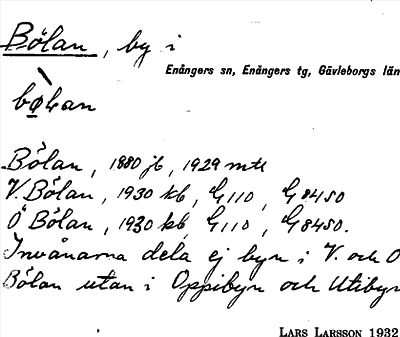 Bölan, by i
Enångers sn, Enångers tg, Gävleborgs län
Bölan, 1880 jb, 1929 mtl
V. Bölan, 1930 kb, G 110, G 8450
Ö Bölan, 1930 kb, G 110, G 8450.
Invånarna dela ej byn i V. och Ö
Bölan utan i Oppibyn och Utibyn
LARS LARSSON 1932